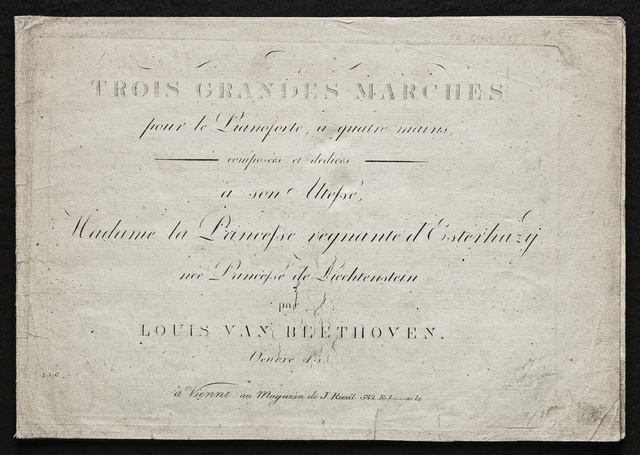 TROIS GRANDES MARCHES
pour le Pianoforte, a quatre mains,
composées et dediées
à son Altesse,
Madame la Princesse regnante d'Esterhazÿ
née Princesse de Liechtenstein
par
LOUIS VAN BEETHOVEN.
Oeuvre
à Vienne au Magazin de J. Riedl 582